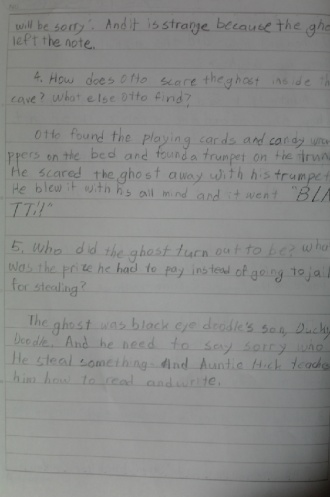 will be sorry". And it is strange because the gho
left the note.
4. How does Otto scare the ghost inside th
cave? What else Otto find?
Otto found the playing cards and candy wra
ppers on the bed and found a trumpet on the
He scared the ghost away with his trumpet
He blew it with his all mind and it went "BLA
TT!!"
5. Who did the ghost turn out to be? wha
was the prize he had to pay instead of going to jail
for stealing?
The ghost was black eye doodle's son, Duchy
Doodle. And he need to say sorry who
He steal something. And Auntie Hick teache
him how to read and write.